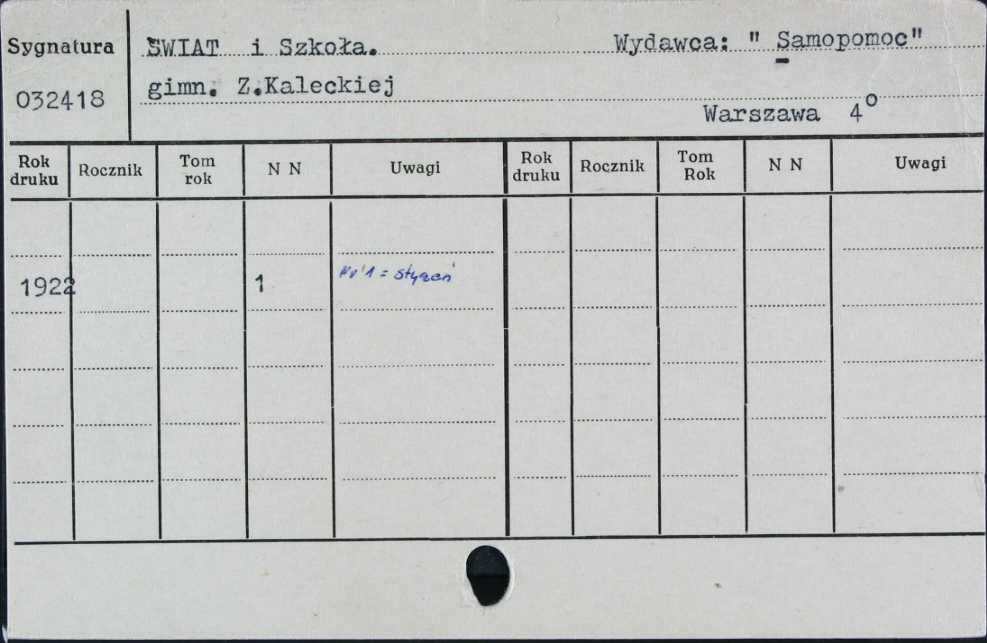 Sygnatura ŚWIAT i Szkoła. Wydawca: " Samopomoc"
032418 gimn. Z.Kaleckiej
Warszawa 4°
Rok druku Rocznik Tom rok N N Uwagi Rok druku Rocznik Tom Rok N N Uwagi
1922 1 Nr 1 = styczeń